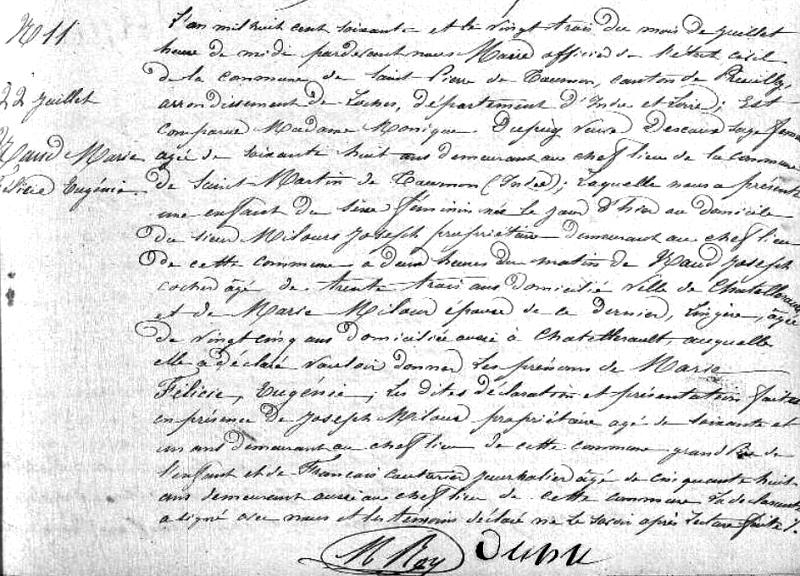 N° 11
22 Juillet
Marie
Félicie Eugénie
L'an mil huit cent soixante et le vingt trois du mois de Juillet
heure de midi pardevant nous Maire officier de l'état civil
de la commune de Saint Pierre de Tournon, canton de Preuilly,
arrondissement de Loches, département d'Indre et Loire; Est
comparue Madame Monique Dupuy Veuve Descoux Sage femme
agée de soixante huit ans demeurant au chef lieu de la commune
de Saint Martin de Tournon (Indre); Laquelle nous a présenté
une enfant du sexe féminin née le jour d'hier au domicile
du sieur Milour Joseph propriétaire demeurant au chef lieu
de cette commune à deux heures du matin de Joseph
cocher agé de trente trois ans domicilié ville de Chatellerault
et de Marie Milour épouse de ce dernier, Lingère, agée
de vingt cinq ans domiciliée aussi à Chatellerault, auquelle
elle a déclaré vouloir donner les prénoms de Marie
Félicie, Eugénie; Les dites déclaration et présentation faites
en présence de Joseph Milour propriétaire agé de soixante et
un ans demeurant au chef lieu de cette commune grand Père de
l'enfant et de François journalier agé de cinquante huit
ans demeurant aussi au chef lieu de cette commune La déclarante
a signé avec nous et les témoins déclaré ne le savoir après Lecture faite.